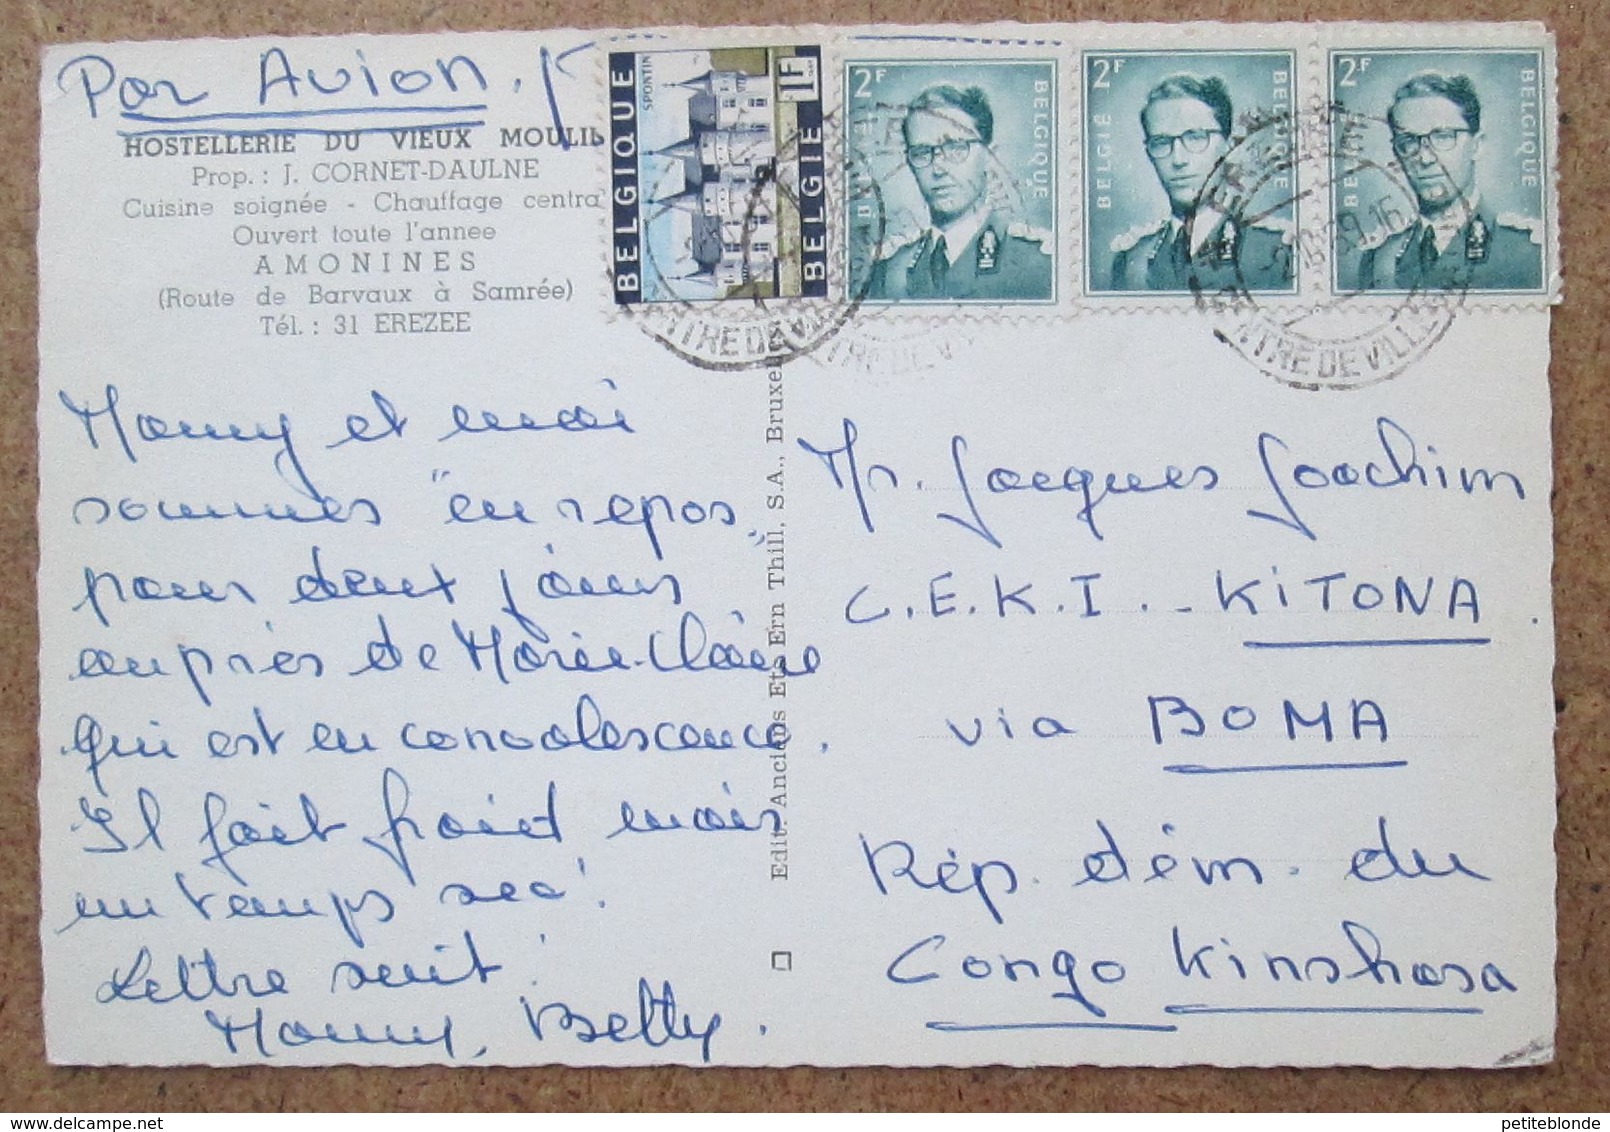 Par Avion.
HOSTELLERIE DU VIEUX MOULI
Prop. : J. CORNET-DAULNE
Cuisine soignée - Chauffage centra
Ouvert toute l'annee
AMONINES
(Route de Barvaux à Samrée)
Tél. : 31 EREZEE
BELGIQUE
SPONTIN
1F
BELGIE
2F
BELGIQUE
2F
BELGIË
2F
BELGIQUE
NTRE DE VILLE
Mamy et moi
sommes "en repos"
pour deux jours
auprès de Marie-Claire
qui est en convalescence.
Il fait froid mais
un temps sec!
Lettre suit!
Mamy, Betty.
Edit. Anciens Ets Ern Thill, S.A., Bruxelles
Mr. Jacques Joachim
C.E.K.I.- KiTONA.
via BOMA
Rép. dém. du
Congo Kinshasa
petiteblonde